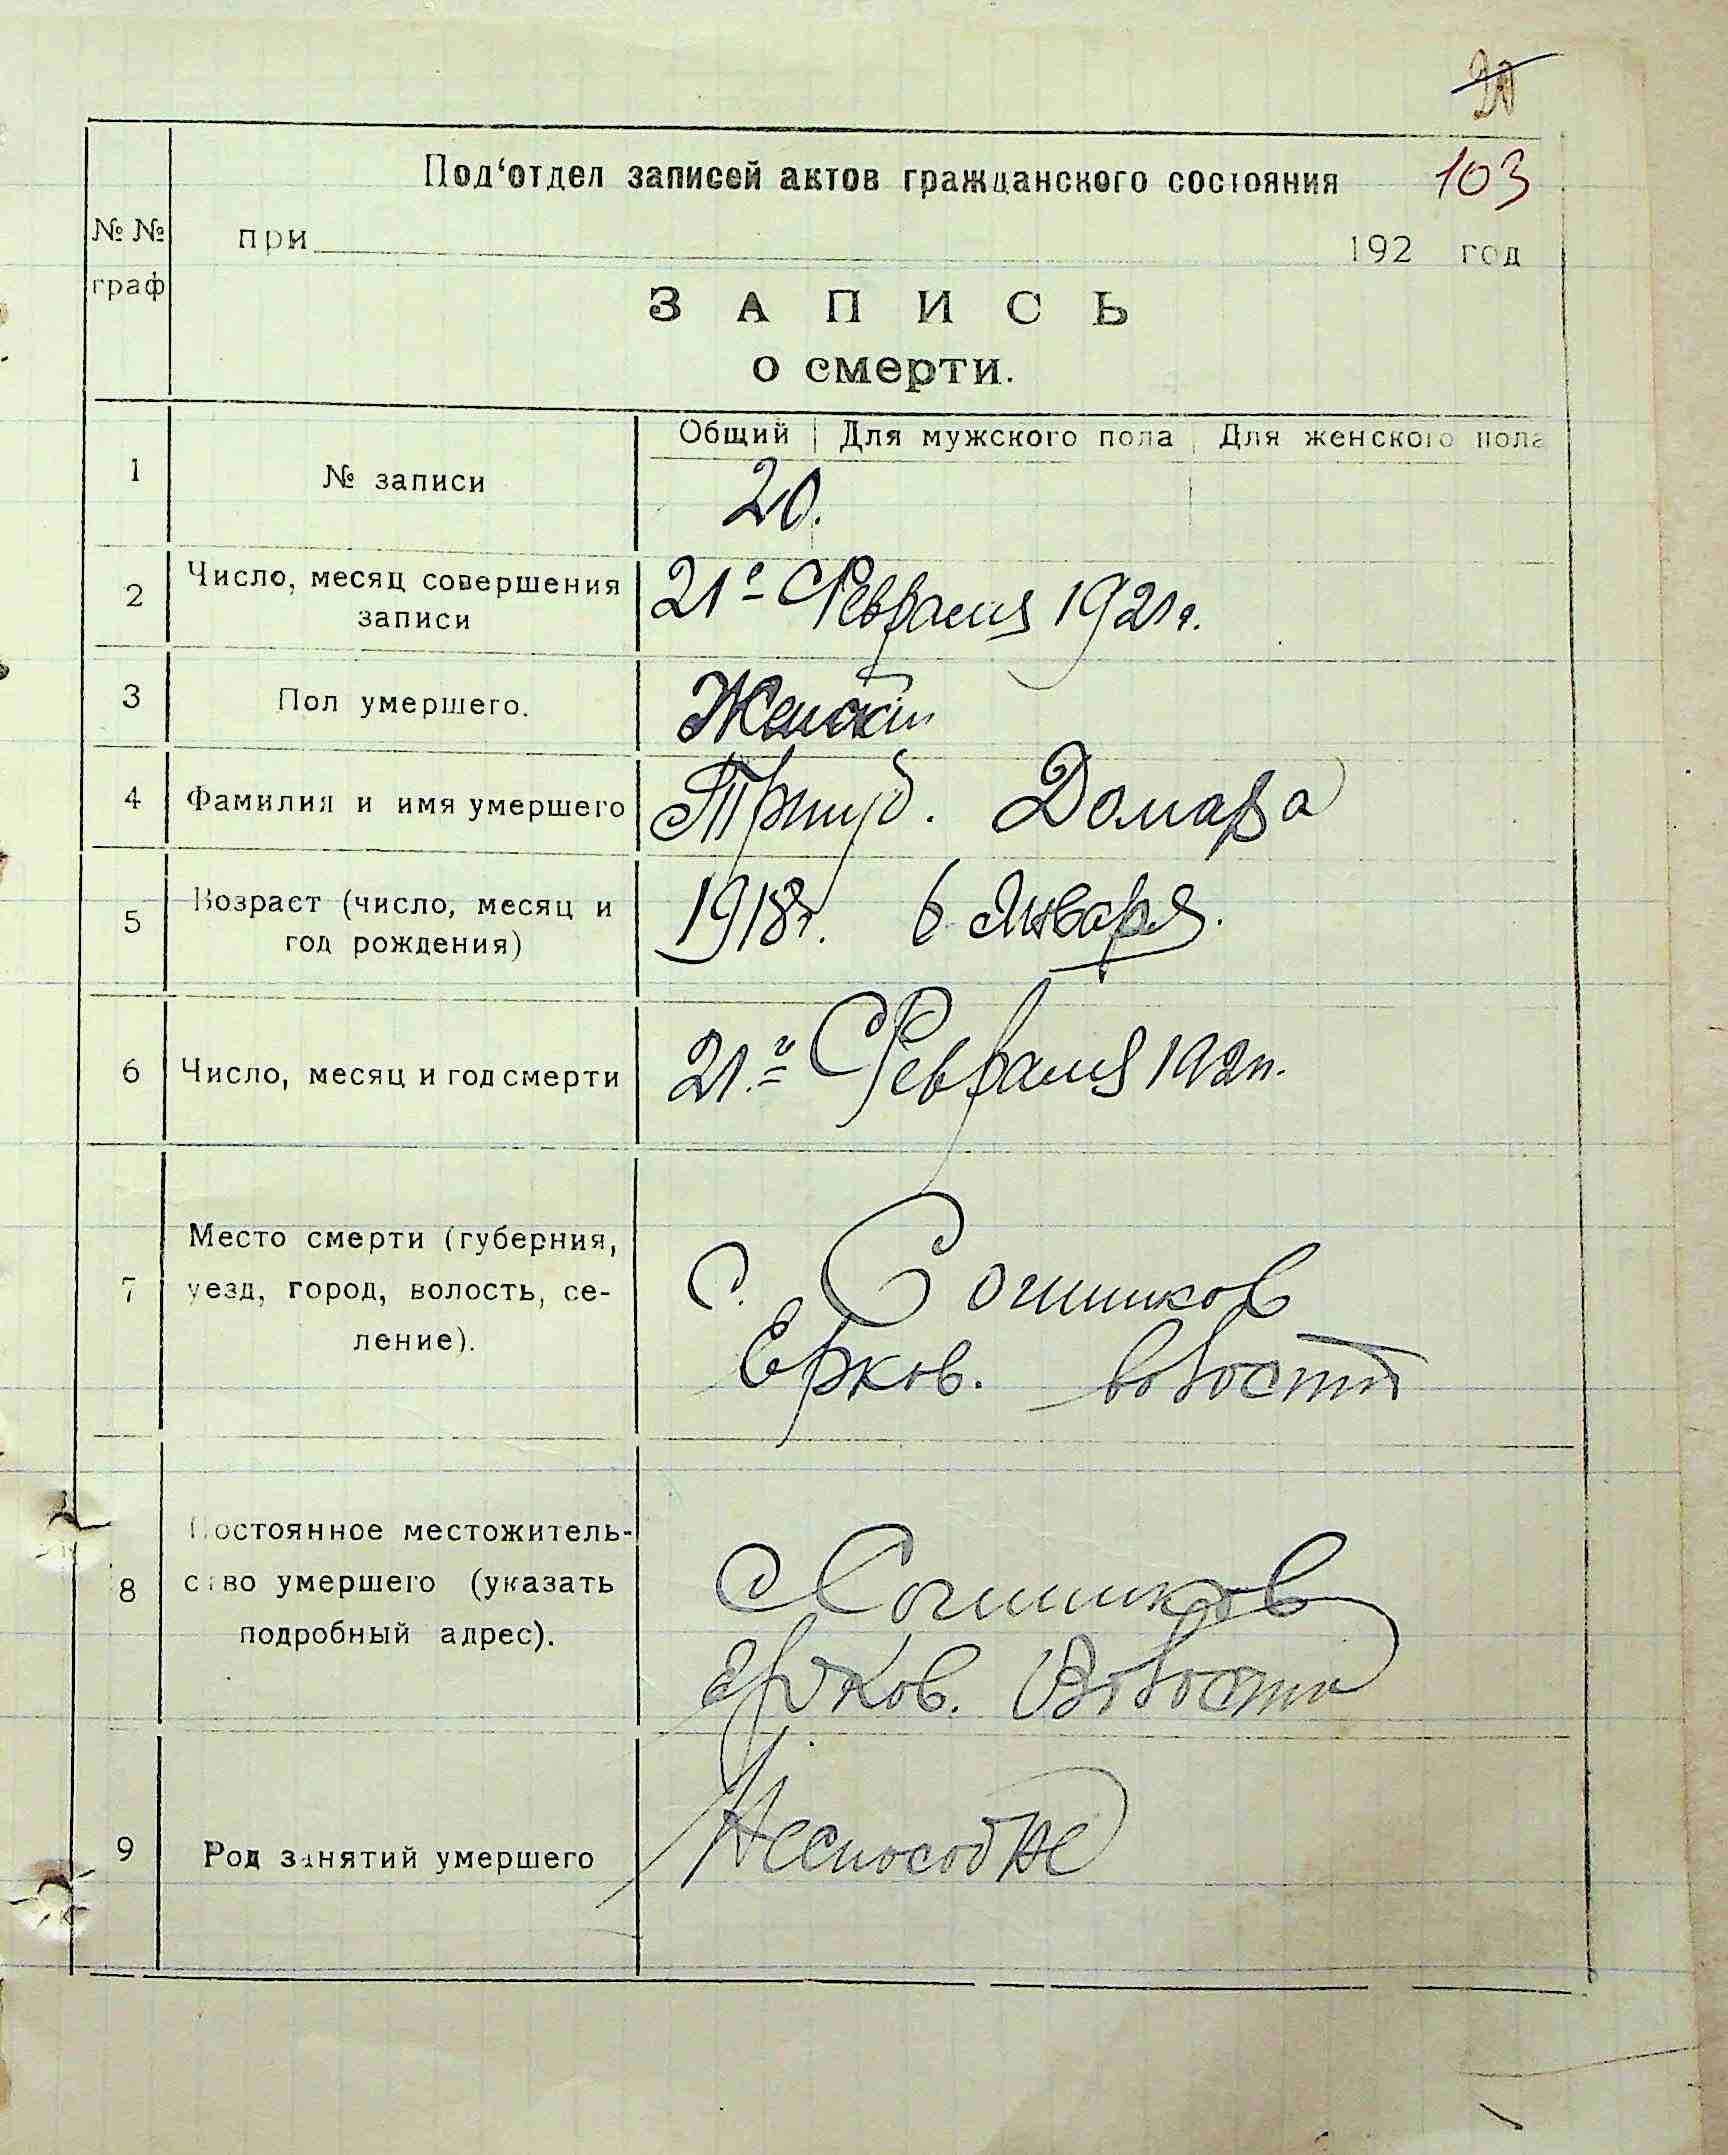 20
103
Под‘отдел записей актов гражданского состояния
при 192 год
№ № граф
ЗАПИСЬ
о смерти.
Общий Для мужского пола Для женского пола
1 № записи 20.
2 Число, месяц совершения записи 21е Февраля 1921г.
3 Пол умершего. Женский
4 Фамилия и имя умершего Тригуб. Домара
5 Возраст (число, месяц и год рождения) 1918г. 6 Января.
6 Число, месяц и год смерти 21.го Февраля 192
7 Место смерти (губерния,
уезд, город, волость, се-
ление).
с. Сошников
Ерков. волости
8 Постоянное местожитель-
ство умершего (указать
подробный адрес).
с Сошников
Ерков. Волости
9 Род занятий умершего